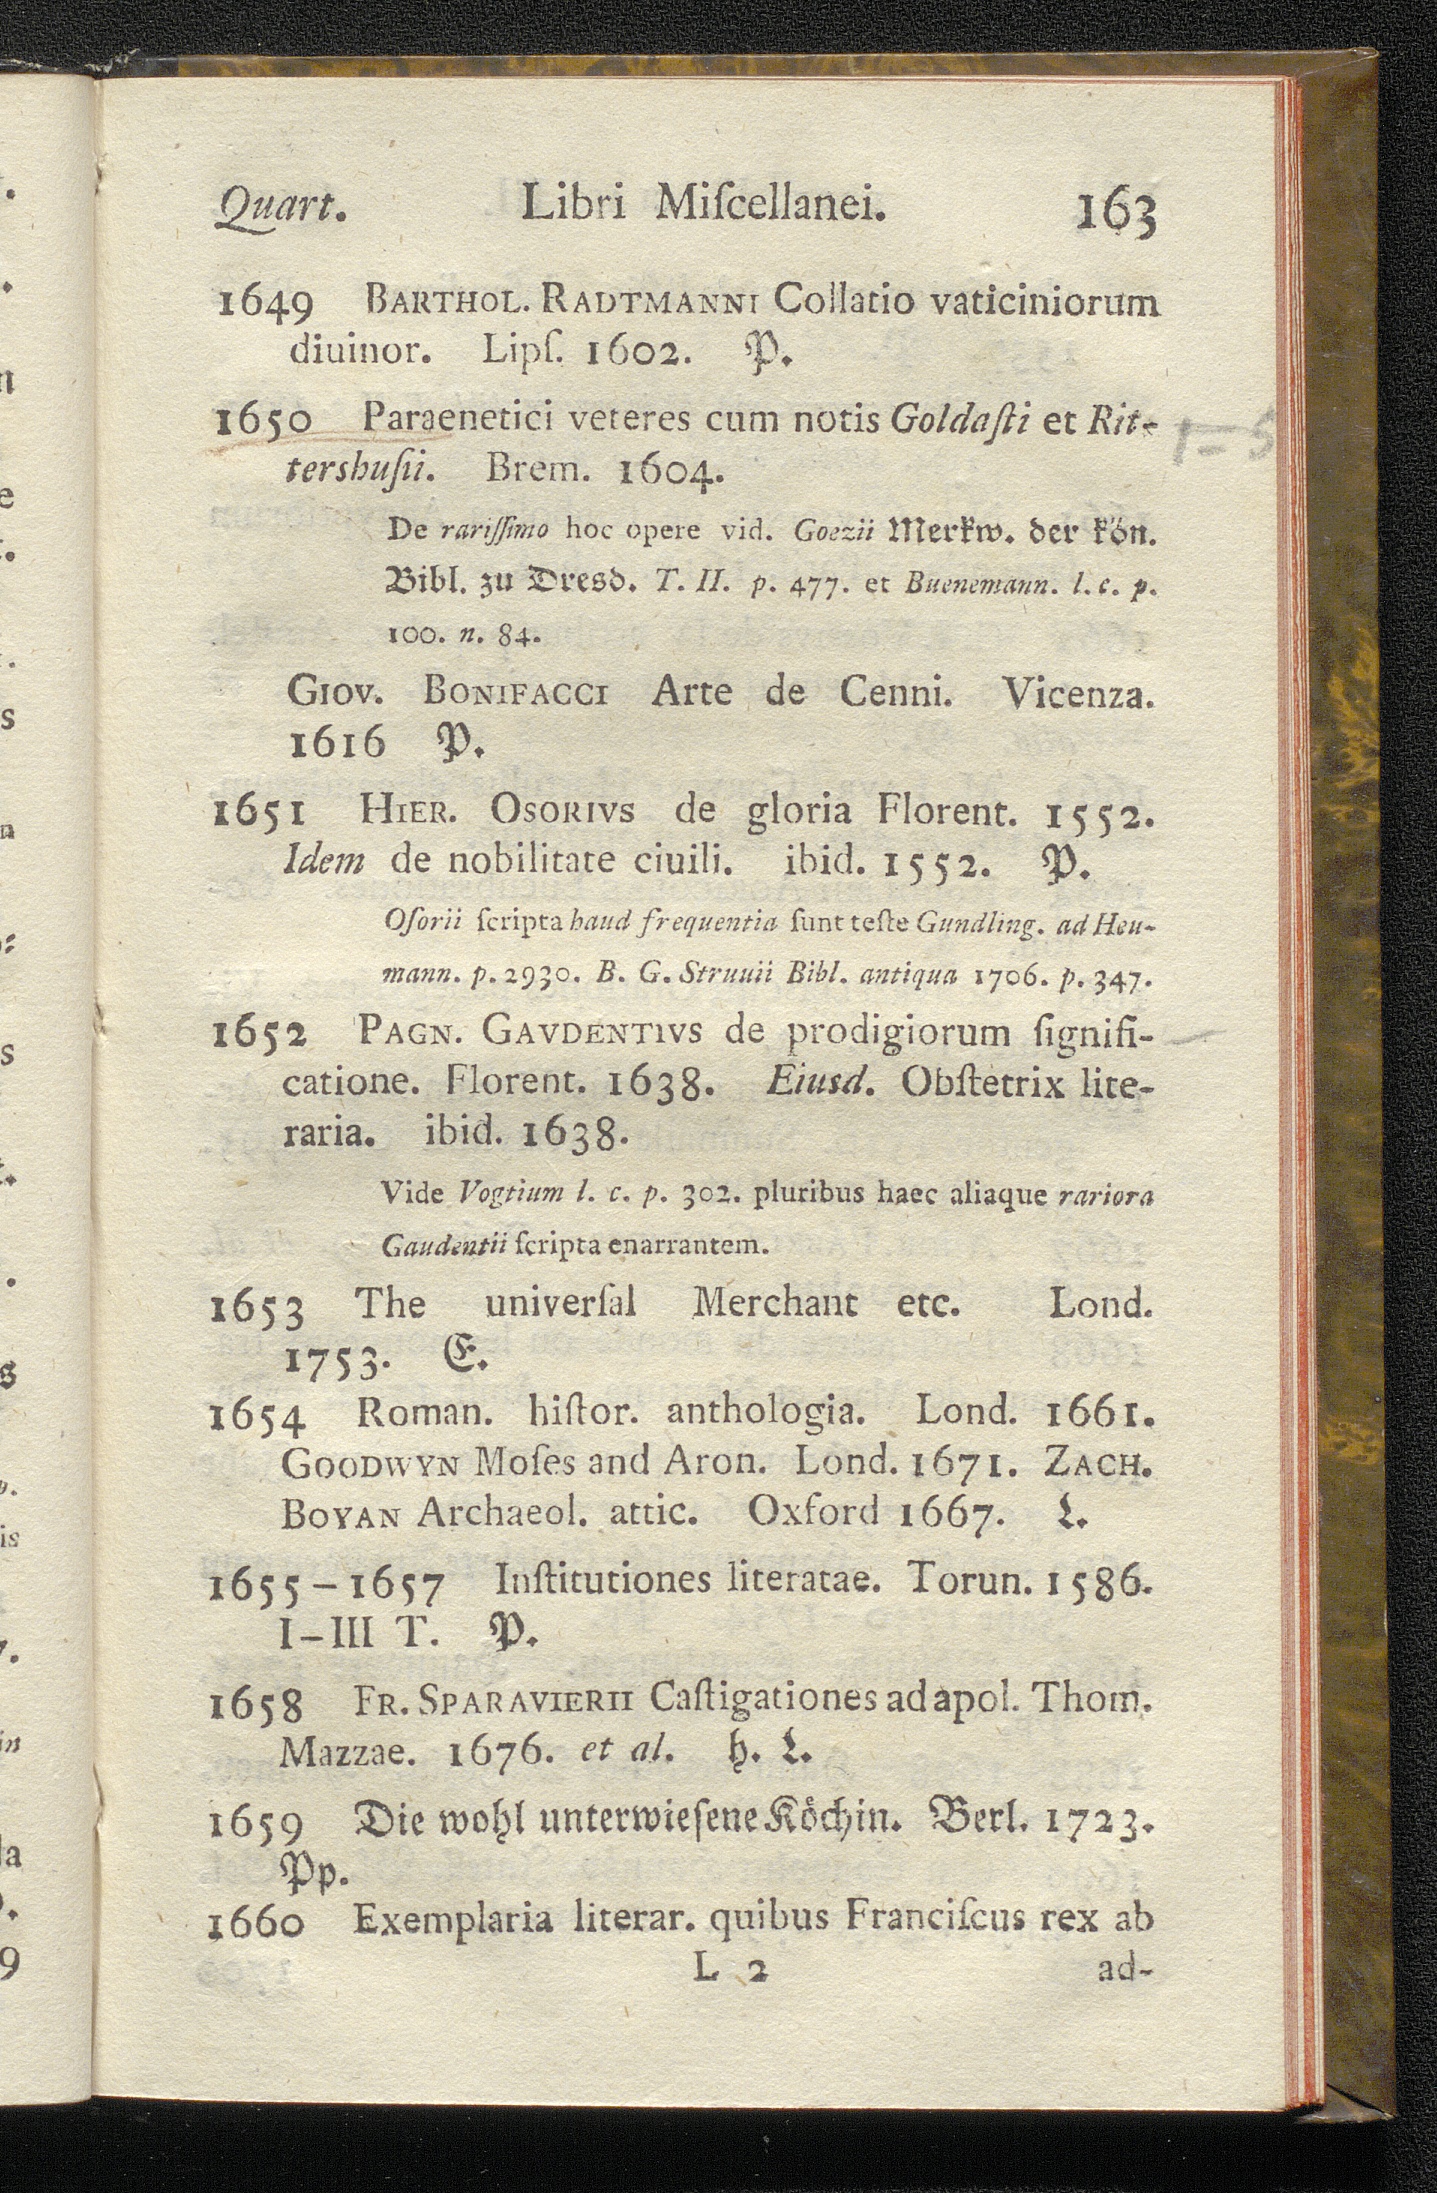 Quart. Libri Miſcellanei. 163
1649 BARTHOL. RADTMANNI Collatio vaticiniorum
diuinor. Lipſ. 1602. P.
1650 Paraenetici veteres cum notis Goldaſti et Rit-
tershuſii. Brem. 1604.
De rariſſimo hoc opere vid. Goezii Merkw. der kön.
Bibl. zu Dresd. T. II. p. 477. et Buenemann. l. c. p.
100. n. 84.
GIOV. BONIFACCI Arte de Cenni. Vicenza.
1616 P.
1651 HIER. OSORIVS de gloria Florent. 1552.
Idem de nobilitate ciuili. ibid. 1552. P.
Oſorii ſcripta haud frequentia ſunt teſte Gundling. ad Heu-
mann. p. 2930. B. G. Struuii Bibl. antiqua 1706. p. 347.
1652 PAGN. GAVDENTIVS de prodigiorum ſignifi-
catione. Florent. 1638. Eiusd. Obſtetrix lite-
raria. ibid. 1638.
Vide Vogtium l. c. p. 302. pluribus haec aliaque rariora
Gaudentii ſcripta enarrantem.
1653 The univerſal Merchant etc. Lond.
1753. E.
1654 Roman. hiſtor. anthologia. Lond. 1661.
GOODWYN Moſes and Aron. Lond. 1671. ZACH.
BOYAN Archaeol. attic. Oxford 1667. L.
1655–1657 Inſtitutiones literatae. Torun. 1586.
I–III T. P.
1658 FR. SPARAVIERII Caſtigationes ad apol. Thom.
Mazzae. 1676. et al. h. L.
1659 Die wohl unterwieſene Köchin. Berl. 1723.
Pp.
1660 Exemplaria literar. quibus Franciſcus rex ab
L 2 ad-